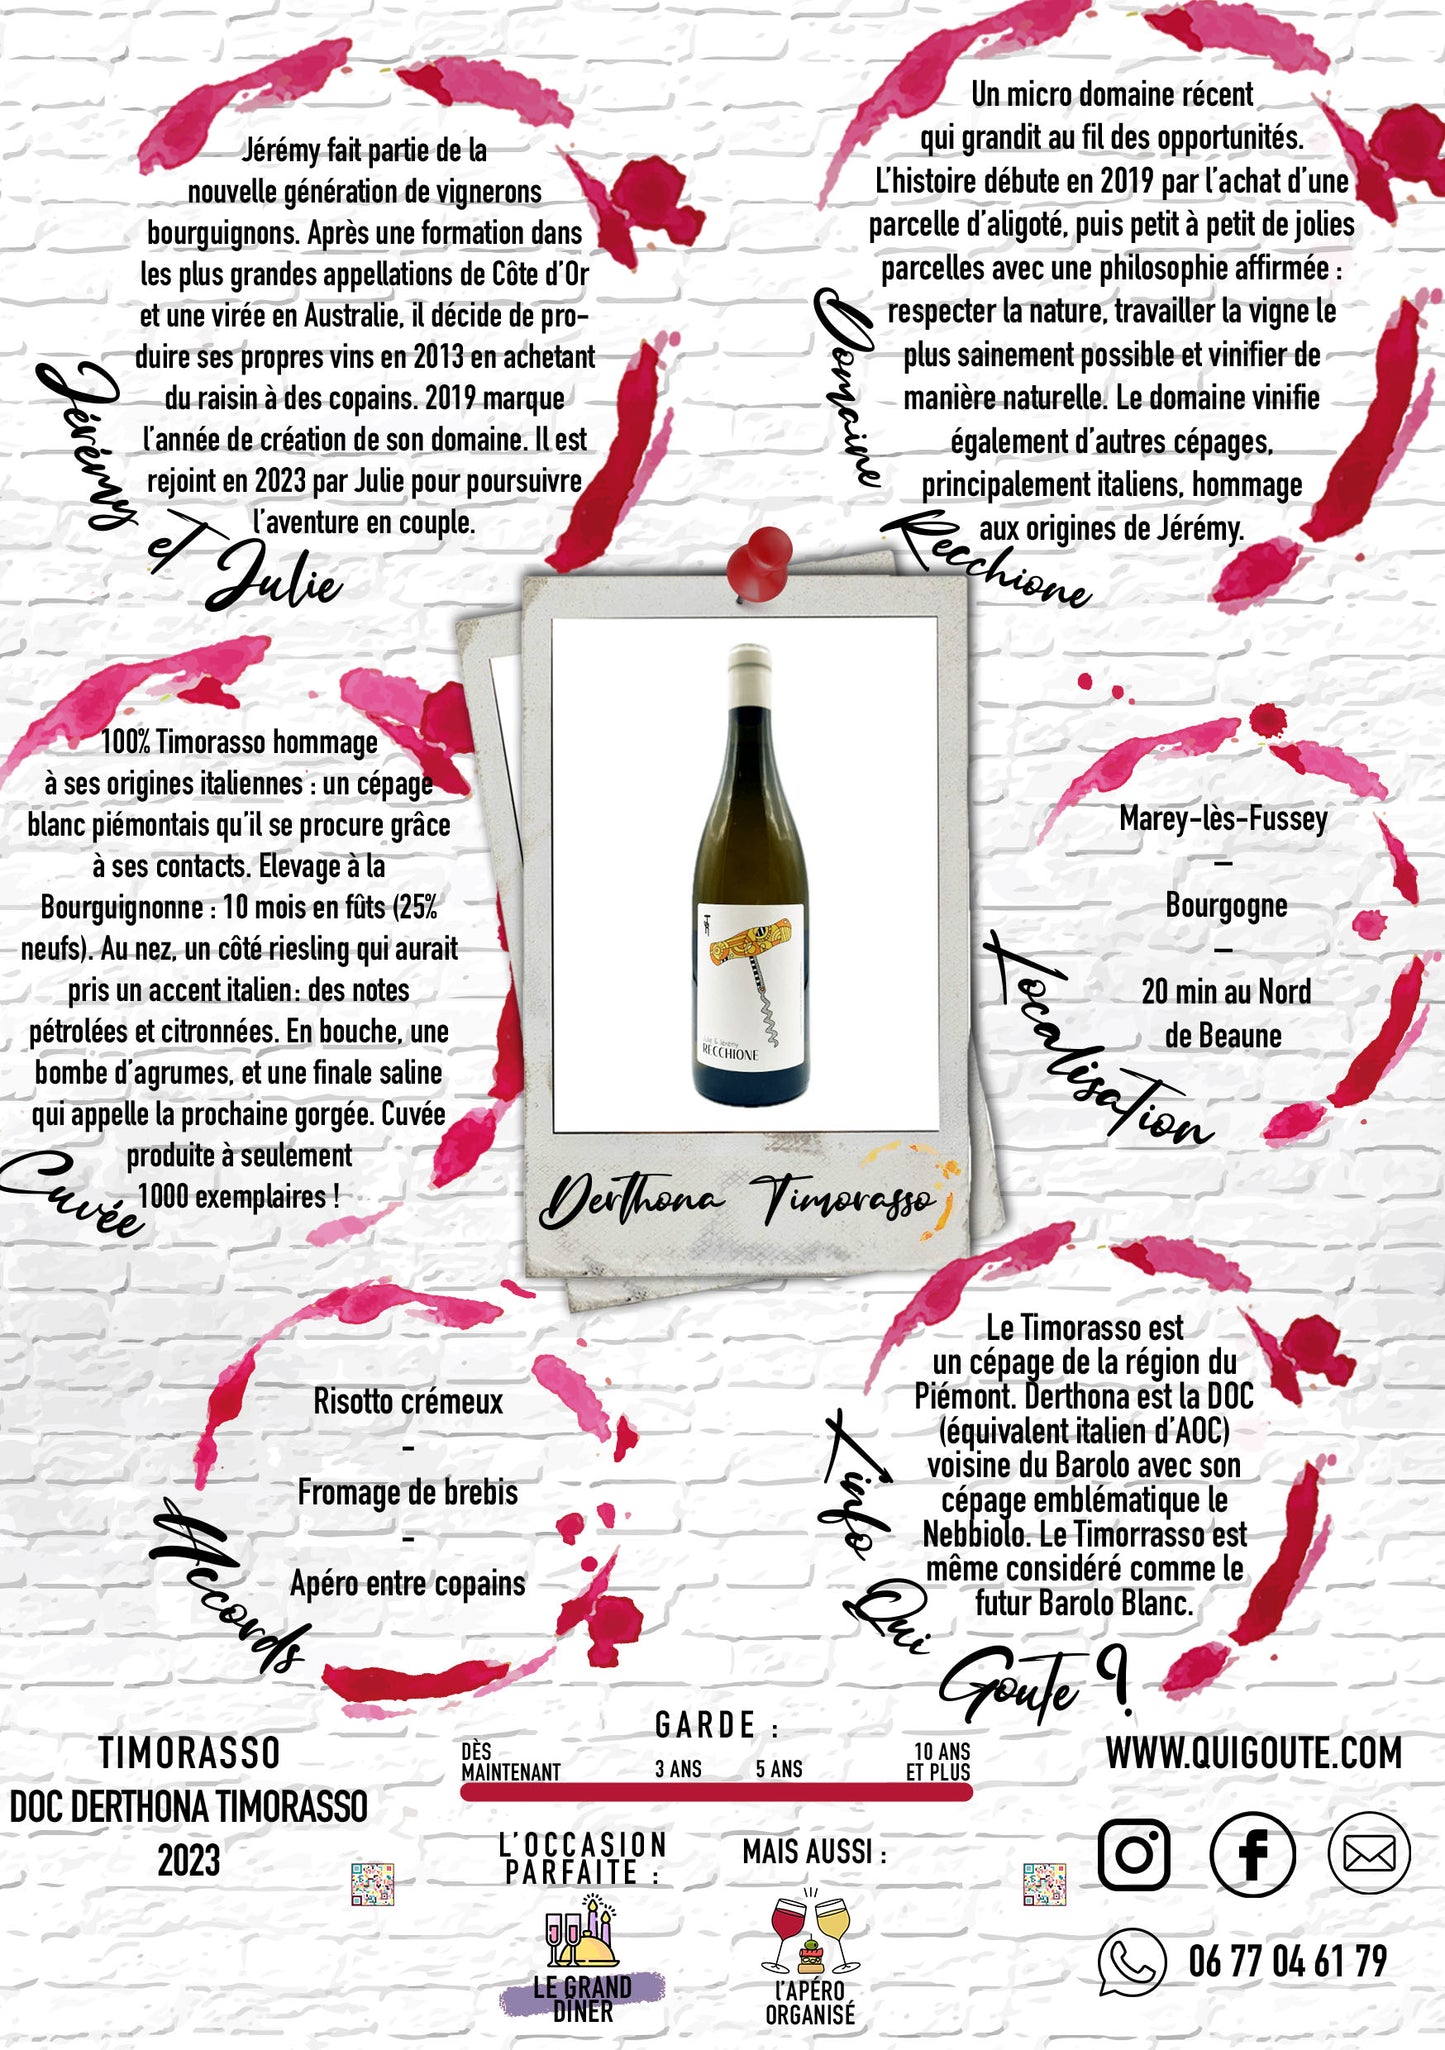 Jérémy fait partie de la
nouvelle génération de vignerons
bourguignons. Après une formation dans
les plus grandes appellations de Côte d'Or
et une virée en Australie, il décide de pro-
duire ses propres vins en 2013 en achetant
du raisin à des copains. 2019 marque
l'année de création de son domaine. Il est
rejoint en 2023 par Julie pour poursuivre
l'aventure en couple.
Jérémy et Julie
Un micro domaine récent
qui grandit au fil des opportunités.
L'histoire débute en 2019 par l'achat d'une
parcelle d'aligoté, puis petit à petit de jolies
parcelles avec une philosophie affirmée :
respecter la nature, travailler la vigne le
plus sainement possible et vinifier de
manière naturelle. Le domaine vinifie
également d'autres cépages,
principalement italiens, hommage
aux origines de Jérémy.
Domaine Recchione
100% Timorasso hommage
à ses origines italiennes : un cépage
blanc piémontais qu'il se procure grâce
à ses contacts. Elevage à la
Bourguignonne : 10 mois en fûts (25%
neufs). Au nez, un côté riesling qui aurait
pris un accent italien: des notes
pétrolées et citronnées. En bouche, une
bombe d'agrumes, et une finale saline
qui appelle la prochaine gorgée. Cuvée
produite à seulement
1000 exemplaires !
Cuvée
Julie & Jérémy
RECCHIONE
Derthona Timorasso
Marey-lès-Fussey
–
Bourgogne
–
20 min au Nord
de Beaune
Localisation
Risotto crémeux
-
Fromage de brebis
-
Apéro entre copains
Accords
Le Timorasso est
un cépage de la région du
Piémont. Derthona est la DOC
(équivalent italien d'AOC)
voisine du Barolo avec son
cépage emblématique le
Nebbiolo. Le Timorrasso est
même considéré comme le
futur Barolo Blanc.
L'info Qui Goute ?
TIMORASSO
DOC DERTHONA TIMORASSO
2023
GARDE :
DÈS
MAINTENANT
3 ANS
5 ANS
10 ANS
ET PLUS
L'OCCASION
PARFAITE :
LE GRAND
DÎNER
MAIS AUSSI :
L'APÉRO
ORGANISÉ
WWW.QUIGOUTE.COM
06 77 04 61 79